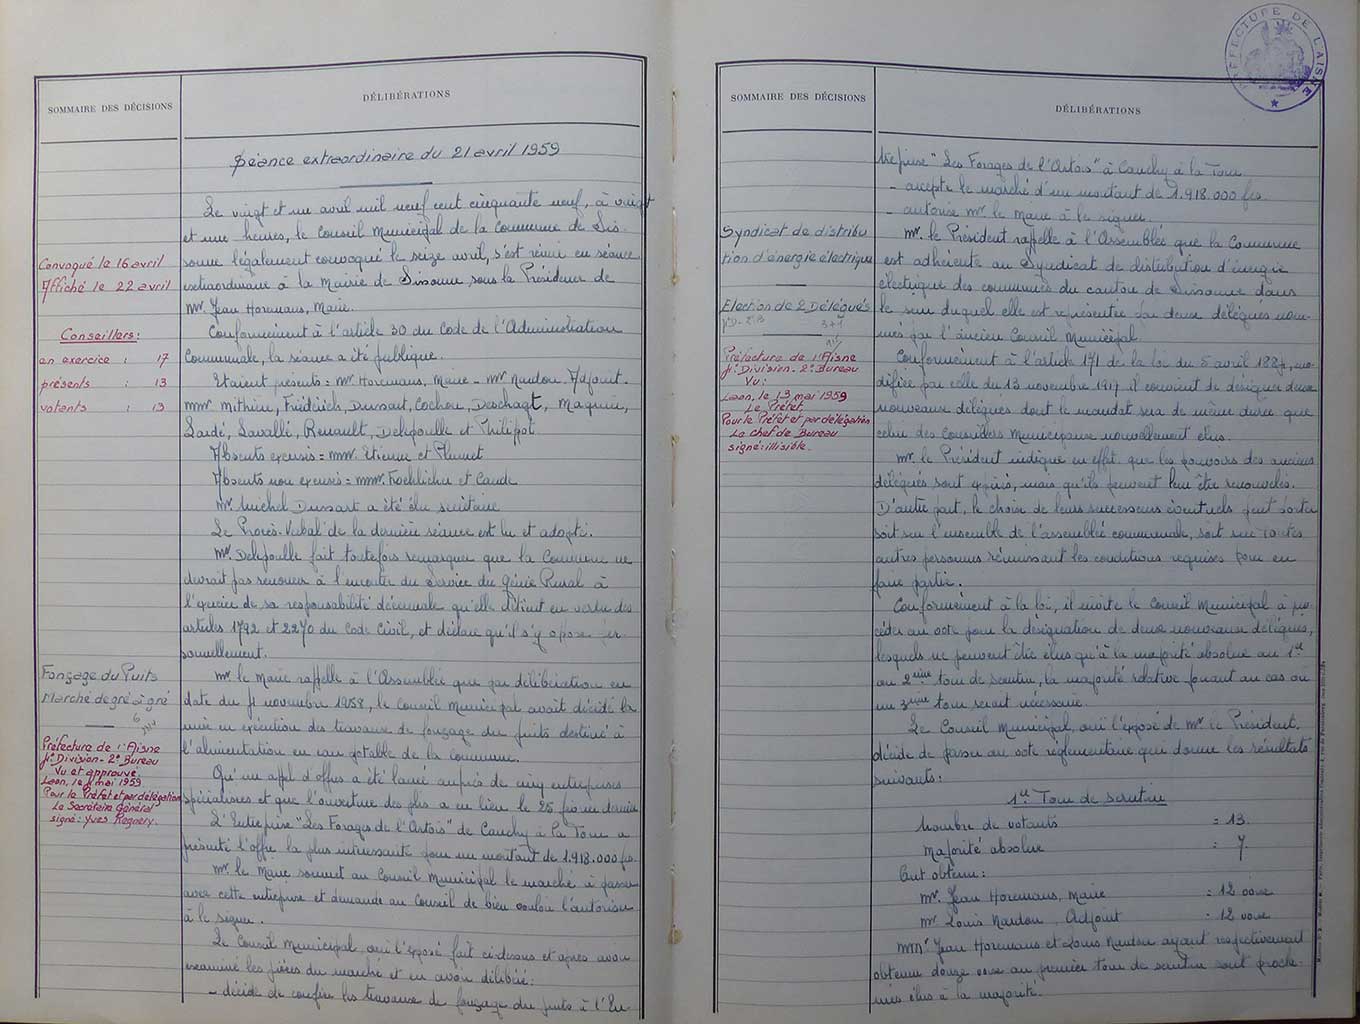 SOMMAIRE DES DÉCISIONS
DÉLIBÉRATIONS
Séance extraordinaire du 21 avril 1959
Le vingt et un avril mil neuf cent cinquante neuf, à vingt
et une heures, le Conseil Municipal de la Commune de Sis
sonne légalement convoqué le seize avril, s'est réuni en séance
extraordinaire à la Mairie de Sissonne sous la Présidence de
Mr. Jean Horemans, Maire.
Conformément à l'article 30 du Code de l'Administration
Communale, la séance a été publique.
Etaient présents = Mr. Horemans, Maire - Mr. Naudon, Adjoint.
MMr. Frédérich, Dussart, Cochon, Deschagt, Magnier,
Lardé, Lavallé, Renault, Delepoulle et Philippot
Absents excusés = MMr. Etienne et Plumet
Absents non excusés = MMr. Koehlicher et Caude
Mr. Michel Dussart a été élu secrétaire
Le Procès-Verbal de la dernière séance est lu et adopté.
Mr. Delepoulle fait toutefois remarquer que la Commune ne
devrait pas renoncer à l'encontre du Service du Génie Rural à
l'exercice de sa responsabilité décennale qu'elle détient en vertu des
articles 1792 et 2270 du Code Civil, et déclare qu'il s'y oppose per
sonnellement.
Mr. le Maire rappelle à l'Assemblée que par délibération en
date du 4 novembre 1958, le Conseil Municipal avait décidé la
mise en exécution des travaux de fonçage du puits destiné à
l'alimentation en eau potable de la commune.
Qu'un appel d'offres a été lancé auprès de cinq entreprises
spécialisées et que l'ouverture des plis a eu lieu le 25 février dernier
L'Entreprise "Les Forages de l'Artois" de Cauchy à la Tour a
présenté l'offre la plus intéressante pour un montant de 1.918.000 frs.
Mr. le Maire soumet au Conseil Municipal le marché à passer
avec cette entreprise et demande au Conseil de bien vouloir l'autoriser
à le signer.
Le Conseil Municipal, ouï l'exposé fait ci-dessus et après avoir
examiné les pièces du marché et en avoir délibéré:
- décide de confier les travaux de fonçage du puits à l'En
Convoqué le 16 avril
Affiché le 22 avril
Conseillers:
en exercice : 17
présents : 13
votants : 13
Fonçage du Puits
Marché de gré à gré
Préfecture de l'Aisne
4e Division - 2e Bureau
Vu et approuvé
Laon, le 4 mai 1959
Pour le Préfet et par délégation
Le Secrétaire Général
signé: Yves Regnery.
PRÉFECTURE DE L'AISNE
SOMMAIRE DES DÉCISIONS
DÉLIBÉRATIONS
treprise "Les Forages de l'Artois" à Cauchy à la Tour
- accepte le marché d'un montant de 1.918.000 frs
- autorise Mr. le Maire à le signer.
Mr. le Président rappelle à l'Assemblée que la Commune
est adhérente au Syndicat de distribution d'énergie
électrique des communes du canton de Sissonne dans
le sein duquel elle est représentée par deux délégués nom-
més par l'ancien Conseil Municipal.
Conformément à l'article 171 de la loi du 5 avril 1884, mo-
difiée par celle du 13 novembre 1917 il convient de désigner deux
nouveaux délégués dont le mandat sera de même durée que
celui des Conseillers Municipaux nouvellement élus.
Mr. le Président indique en effet, que les pouvoirs des anciens
délégués sont expirés, mais qu'ils peuvent leur être renouvelés.
D'autre part, le choix de leurs successeurs éventuels peut porter
soit sur l'ensemble de l'assemblée communale, soit sur toutes
autres personnes réunissant les conditions requises pour en
faire partie.
Conformément à la loi, il invite le Conseil Municipal à pro-
céder au vote pour la désignation de deux nouveaux délégués,
lesquels ne peuvent être élus qu'à la majorité absolue au 1er
ou 2ème tour de scrutin, la majorité relative jouant au cas où
un 3ème tour serait nécessaire.
Le Conseil Municipal, ouï l'exposé de Mr. le Président,
décide de passer au vote réglementaire qui donne les résultats
suivants:
1er Tour de scrutin
Nombre de votants = 13.
Majorité absolue : 7.
Ont obtenu:
Mr. Jean Horemans, Maire : 12 voix
Mr. Louis Naudon, Adjoint : 12 voix
MMr. Jean Horemans et Louis Naudon ayant respectivement
obtenu douze voix au premier tour de scrutin sont procla-
més élus à la majorité.
Syndicat de distribu
tion d'énergie électrique
Election de 2 Délégués
Préfecture de l'Aisne
4e Division - 2e Bureau
Vu:
Laon, le 13 mai 1959
Le Préfet,
Pour le Préfet et par délégation
Le Chef de Bureau
signé: illisible.